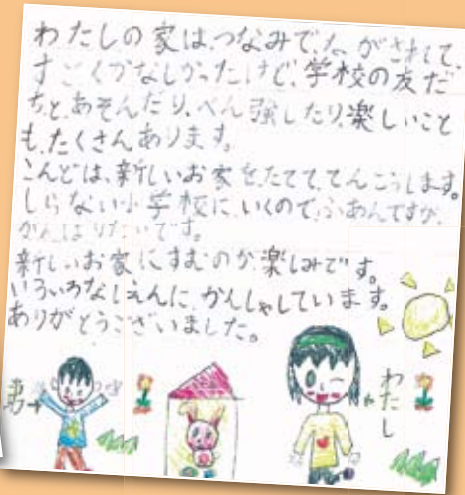 わたしの家は、つなみで、ながされて、
すごくかなしかったけど、学校の友だ
ちと、あそんだり、べん強したり、楽しいこと
も、たくさんあります。
こんどは、新しいお家をたてて、てんこうします。
しらない小学校に、いくので、ふあんですが、
がんばりたいです。
新しいお家にすむのが楽しみです。
いろいろなしえんに、かんしゃしています。
ありがとうございました。
わたし